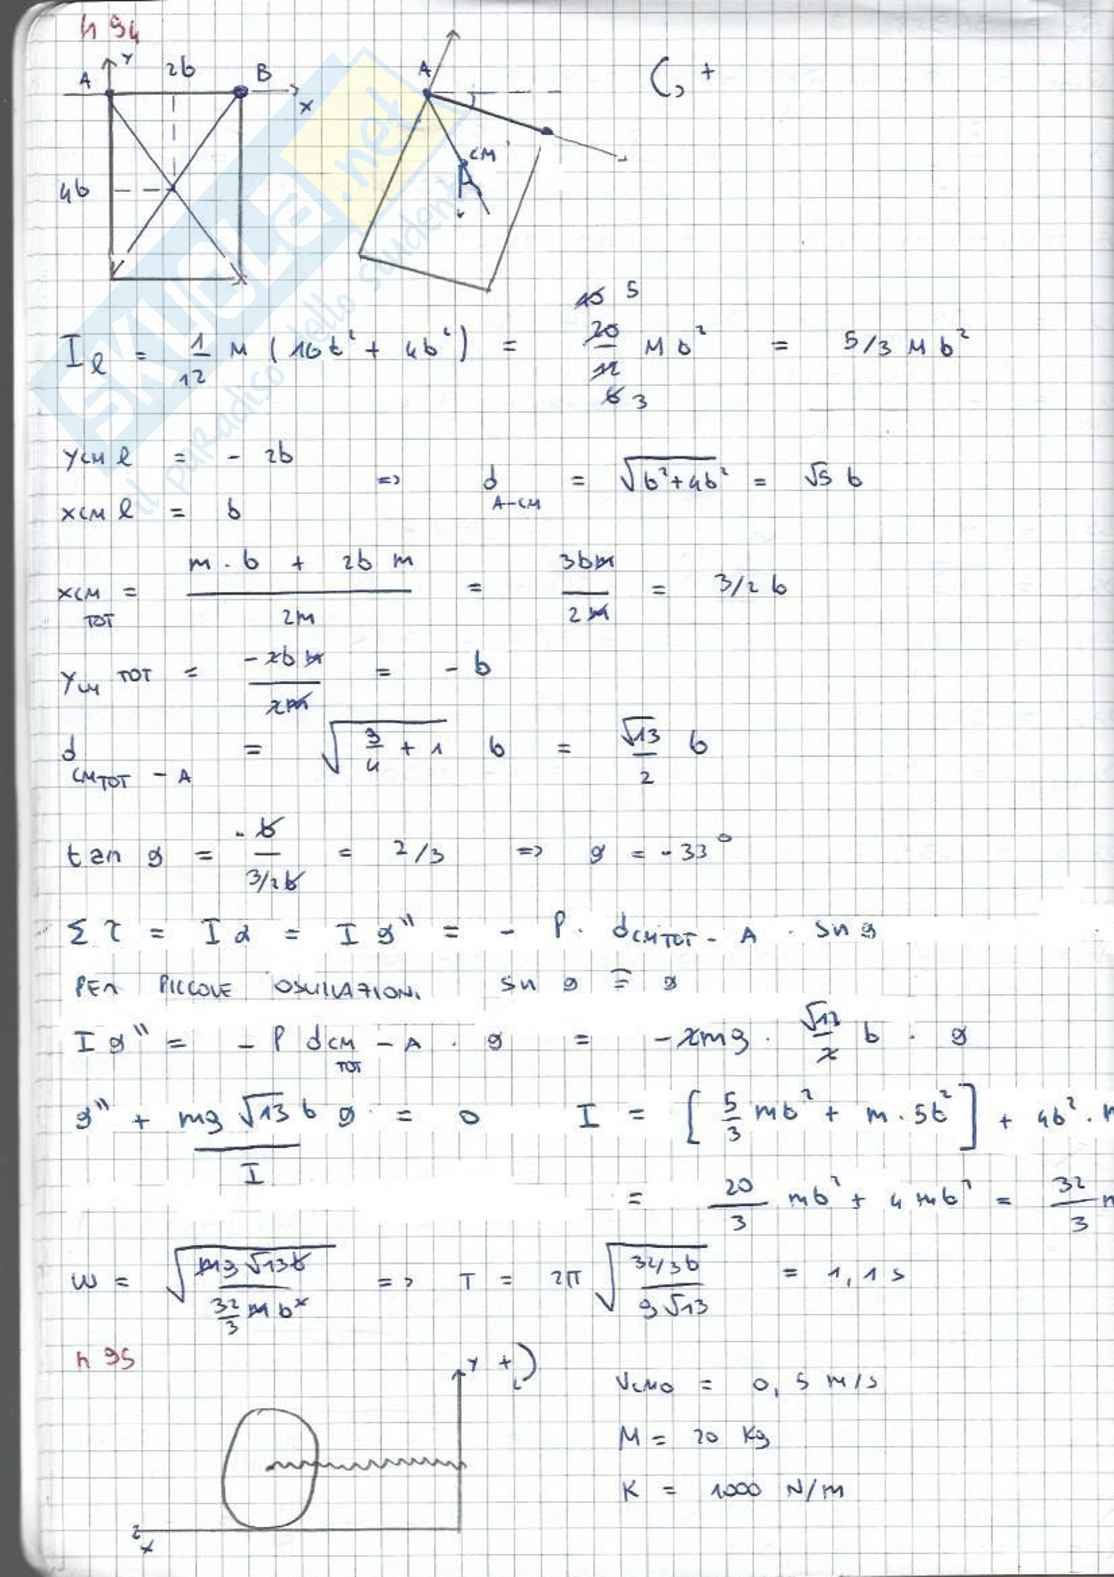 n 94
A Y 2b B X
A
C, +
4b
CM
10 5
I_l = 1/12 M (16b² + 4b²) = 20/12 M b² = 5/3 M b²
6 3
y_CM l = - 2b
=> d_A-CM = √(b² + 4b²) = √5 b
x_CM l = b
x_CM TOT = (m · b + 2b m)/2m = 3bm/2m = 3/2 b
y_CM TOT = -2bm/2m = - b
d_CM TOT - A = √(9/4 + 1) b = √13/2 b
tan θ = -b/(3/2 b) = 2/3 => θ = - 33°
Σ τ = I α = I θ'' = - P · d_CM TOT - A · sn θ
PER PICCOLE OSCILLAZIONI sn θ ≅ θ
I θ'' = - P d_CM TOT - A · θ = - 2mg · √13/2 b · θ
θ'' + (mg √13 b)/I θ = 0 I = [5/3 mb² + m · 5b²] + 4b² · m
= 20/3 mb² + 4 mb² = 32/3 m
W = √(mg √13 b / (32/3 m b²)) => T = 2π √(32/3 b / (g √13)) = 1,1 s
n 95
Y +)
V_CM0 = 0,5 m/s
M = 20 Kg
K = 1000 N/m
z x
SKUOLA.net
il paradiso dello studente